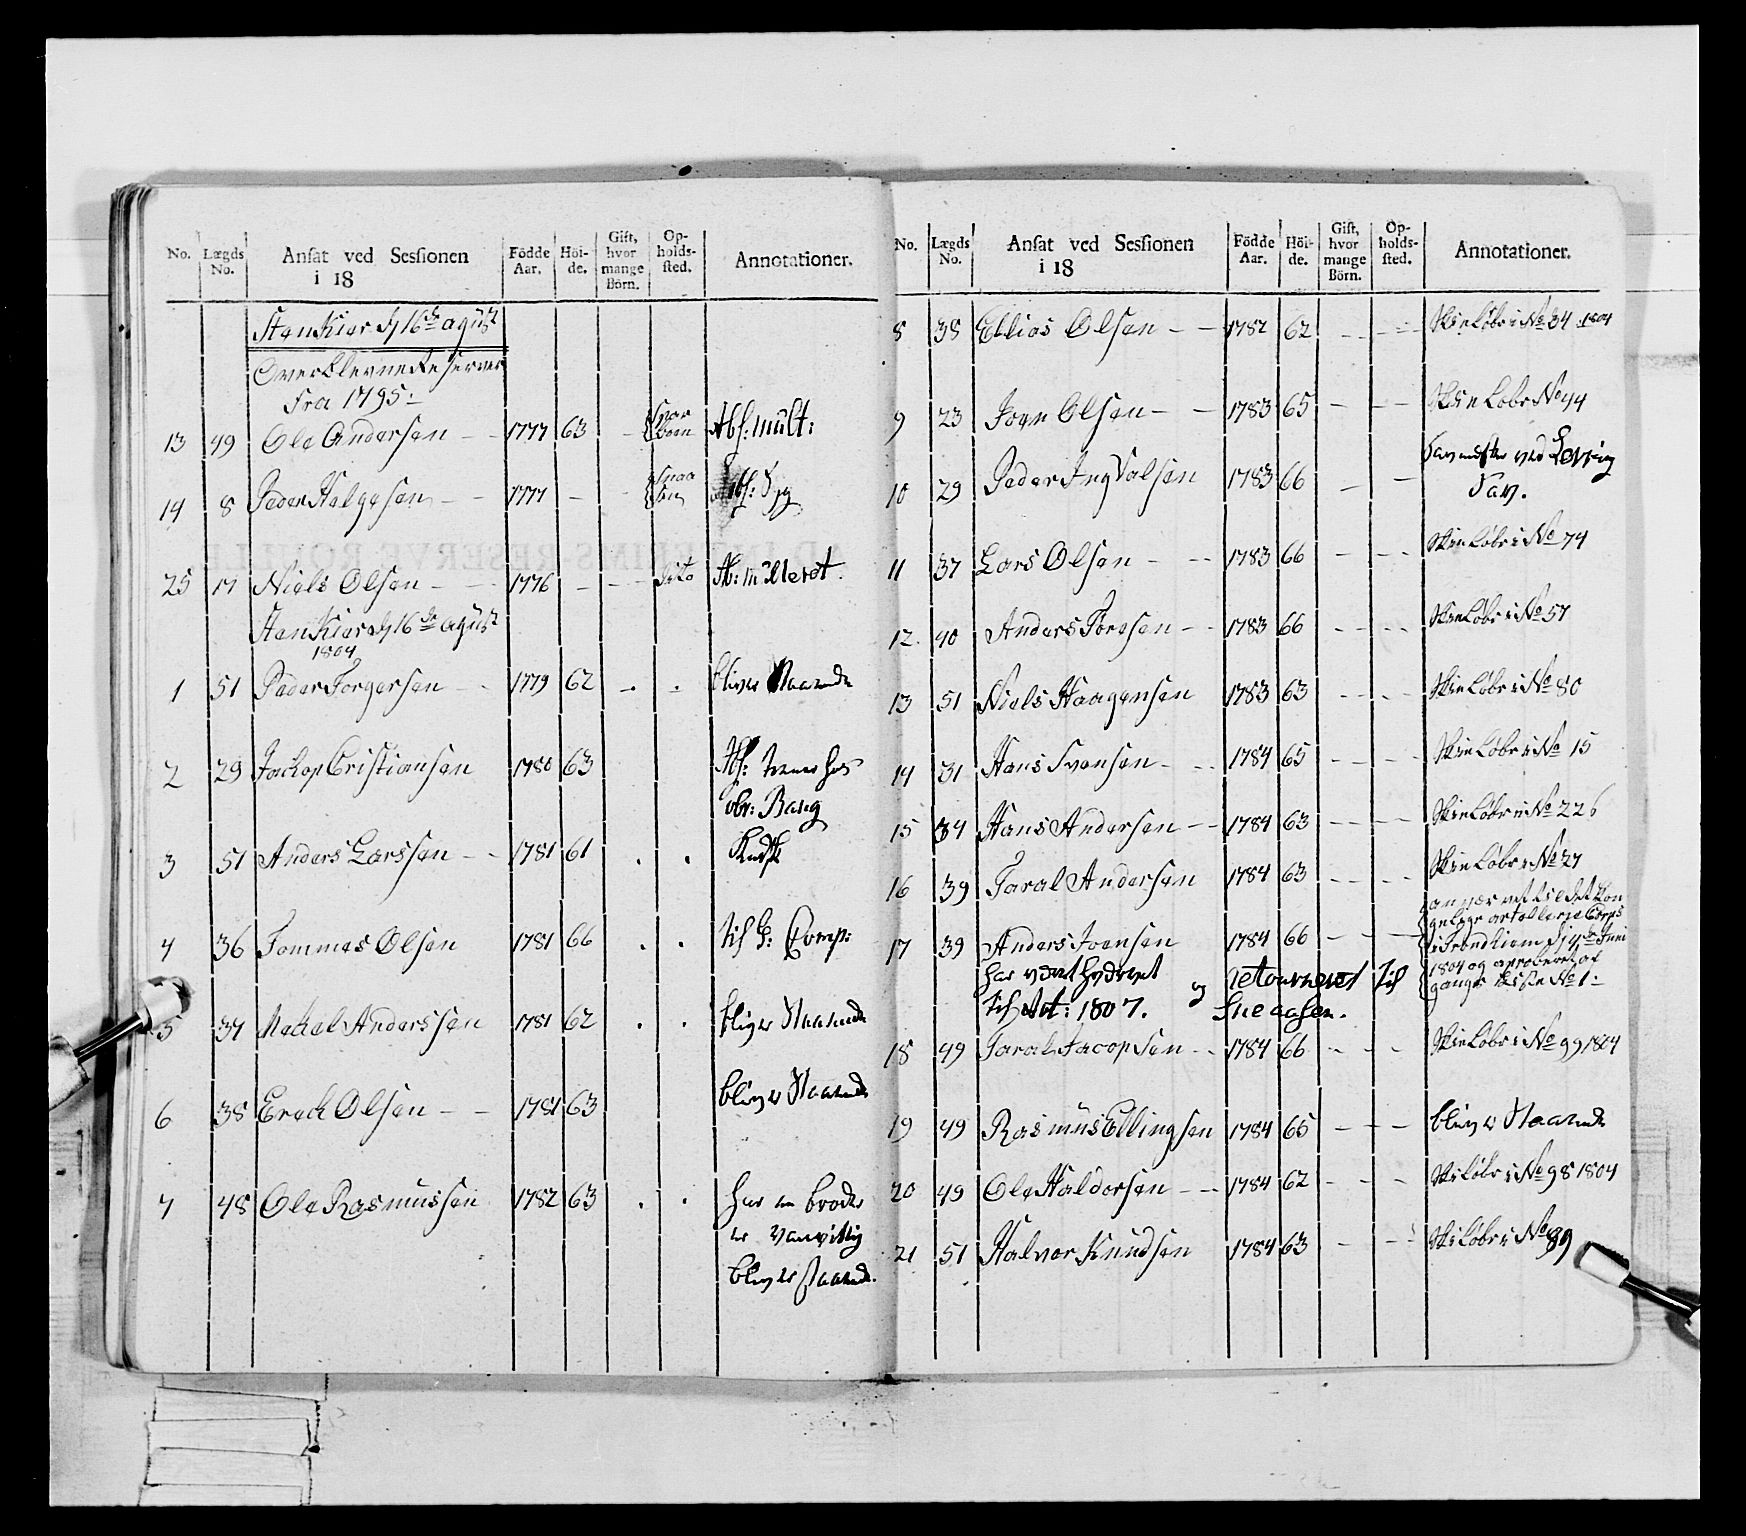 No. Lægds No. Ansat ved Sessionen i 18 Födde Aar. Höi-de. Gift, hvor mange Börn. Op-holds-sted. Annotationer.
StenKier d 16de agust
OverblevneReserver
fra 1795
13 49 Ole Andersen - - 1777 63 - Abs: mült:
14 8 Peder Helgesen - - 1777 - - Snaasen
25 17 Niels Olsen - - 1776 - - dito
StenKier d 16de agust
1804
1 51 Peder Torgersen - - 1779 62 - - bliver Staaende
2 29 Jackop Cristiansen 1780 63
obr: Bang
3 51 Anders Larssen - - 1781 61 . .
4 36 Tommes Olsen 1781 66 . . til Comp:
5 37 Mekel Anderssen 1781 62 . . bliver Staaende
6 38 Ereck Olsen - - 1781 63 bliver Staaende
7 48 Ole Rasmussen 1782 63 . . har en broder
er vanvittig
bliver staaende.
No. Lægds No. Ansat ved Sessionen i 18 Födde Aar. Höi-de. Gift, hvor mange Börn. Op-holds-sted. Annotationer.
8 38 Ellias Olsen - - 1782 62 - - Skieløber No 34 1804
9 23 Joen Olsen - - 1783 65 - - Skieløber No 44
10 29 Peder Ingvalsen 1783 66 - -
11 37 Lars Olsen - - 1783 66 - - Skieløber No 74
12 40 Anders Toresen - - 1783 66 - - Skieløber No 57
13 51 Niels Haagensen 1783 63 - - Skieløber No 80
14 31 Hans Svensen - - 1784 65 - - Skieløber No 15
15 34 Hans Andersen - - 1784 63 - - Skieløber No 226
16 39 Taral Andersen 1784 63 - - Skieløber No 27
17 39 Anders Joensen 1784 66 - -
gelige artellerie Corps
i Trondhiem d Juni
1804 og aproberet af
No 1
har været hydret og retourneret til
til Art: 1807. Sneaasen.
18 49 Taral Jacopsen - - 1784 66 - - Skieløber No 99 1804
19 49 Rasmus Ellingsen 1784 65 - - bliver Staaende
20 49 Ole Haldorsen - - 1784 62 - - Skieløber No 98 1804
21 51 Halvor Knudsen 1784 63 - - Skieløber No 89